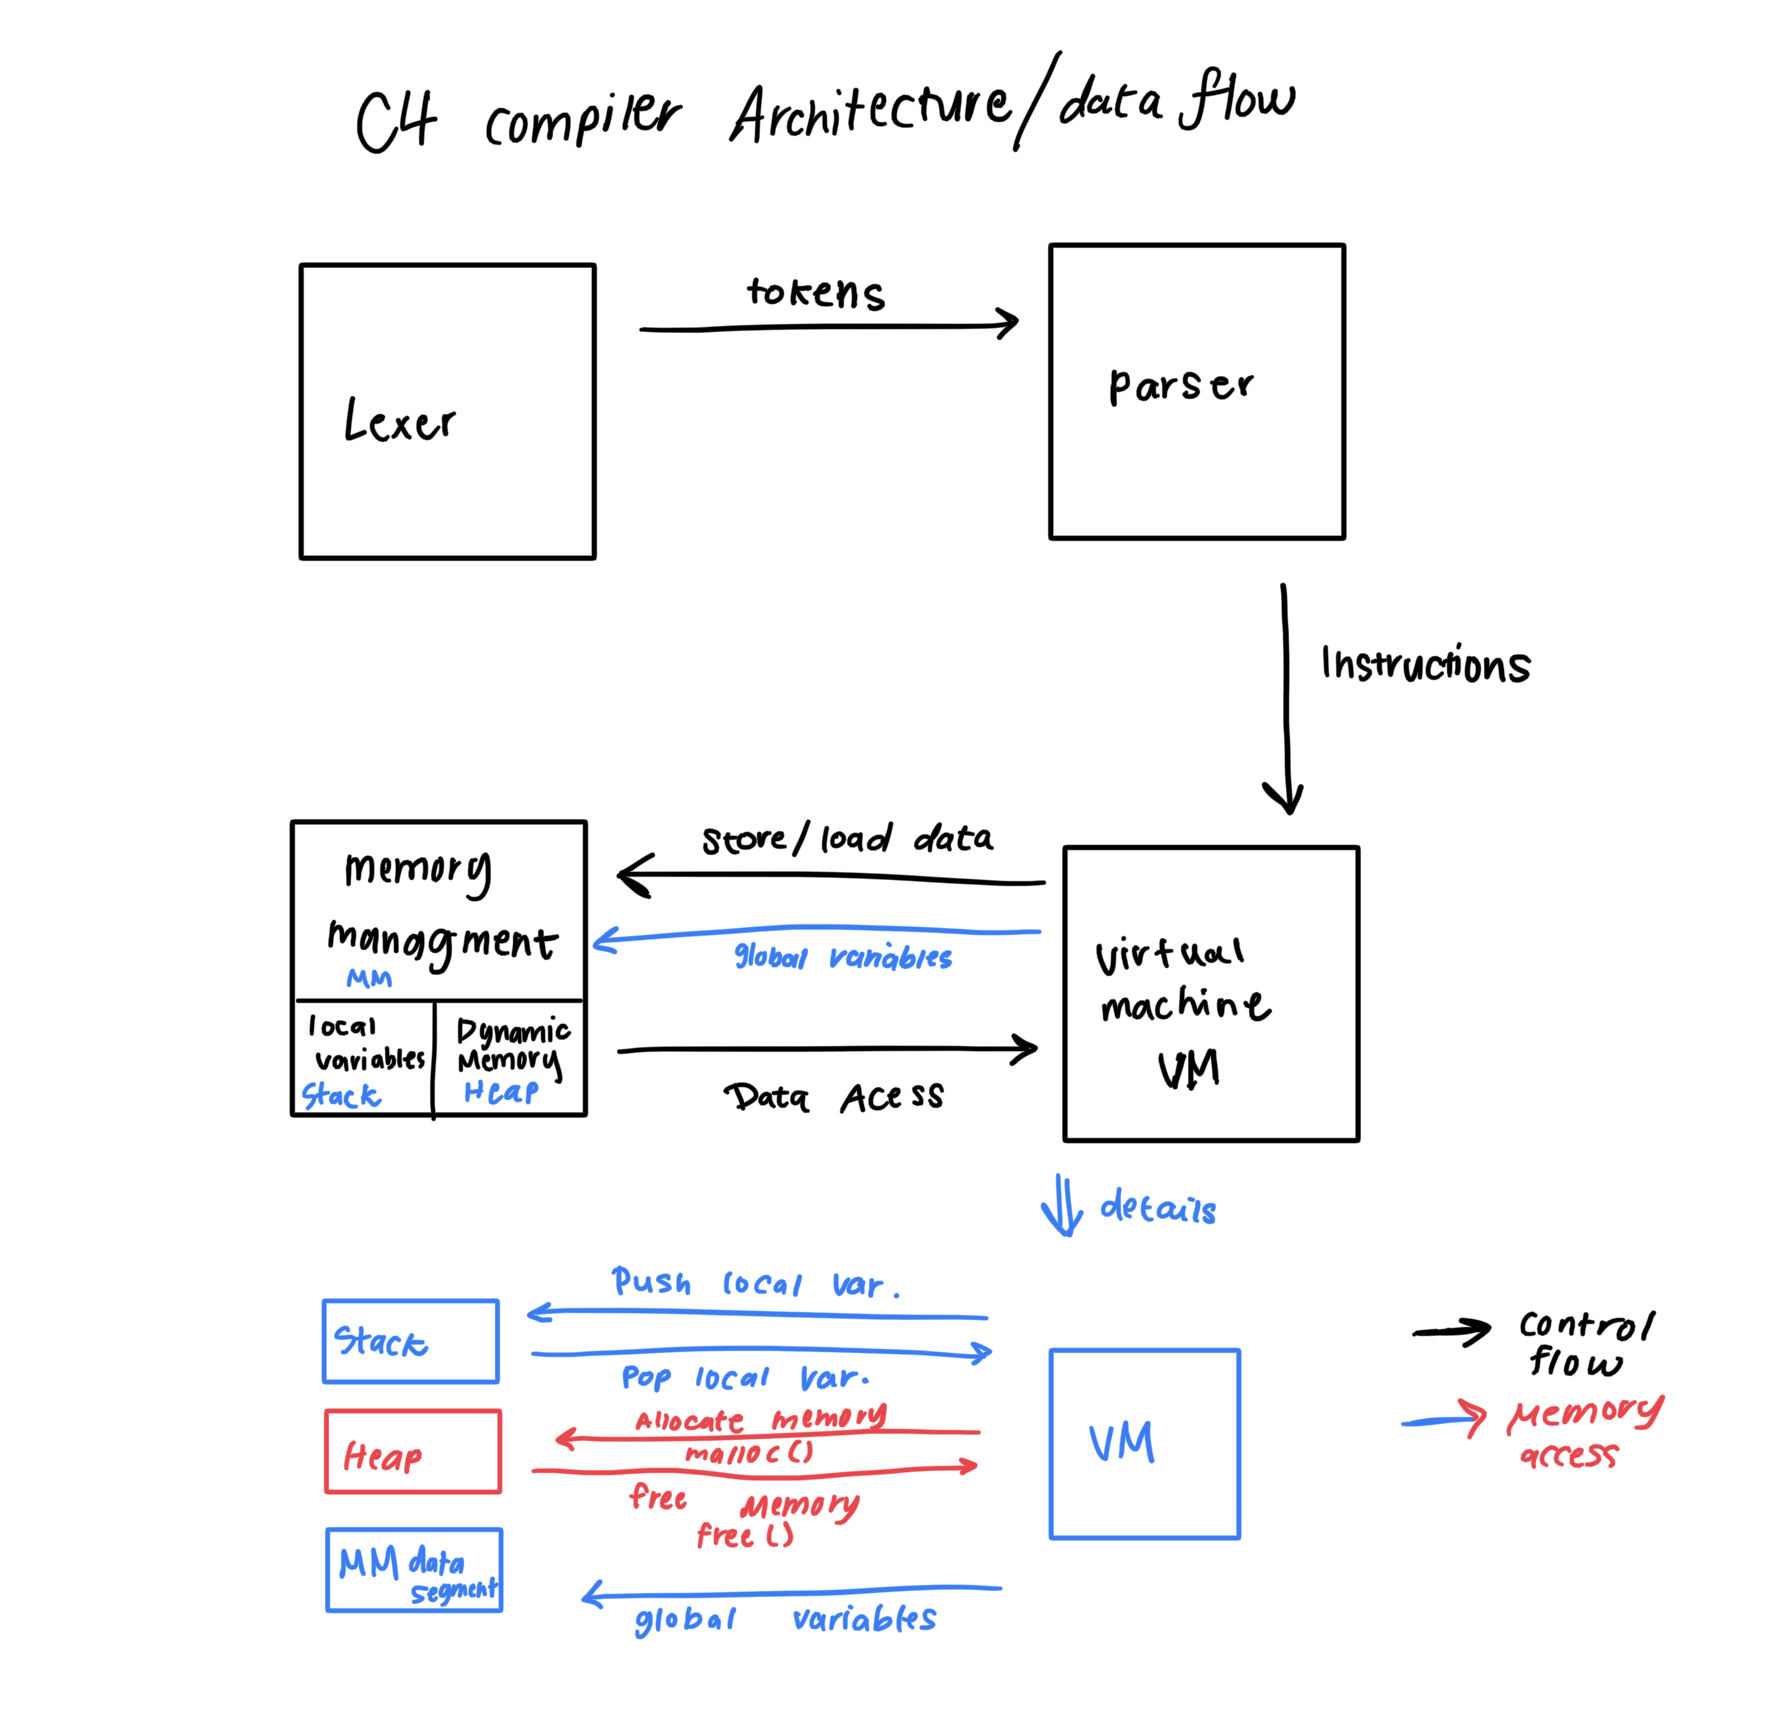 C4 compiler Architecture/data flow
tokens
Lexer
parser
Instructions
memory
managment
MM
local
variables
Stack
Dynamic
Memory
Heap
store/load data
global variables
Data Acess
virtual
machine
VM
details
Push local var.
Stack
Pop local var.
Allocate memory
malloc()
Heap
free Memory
free()
MM data
segment
global variables
VM
control
flow
Memory
access